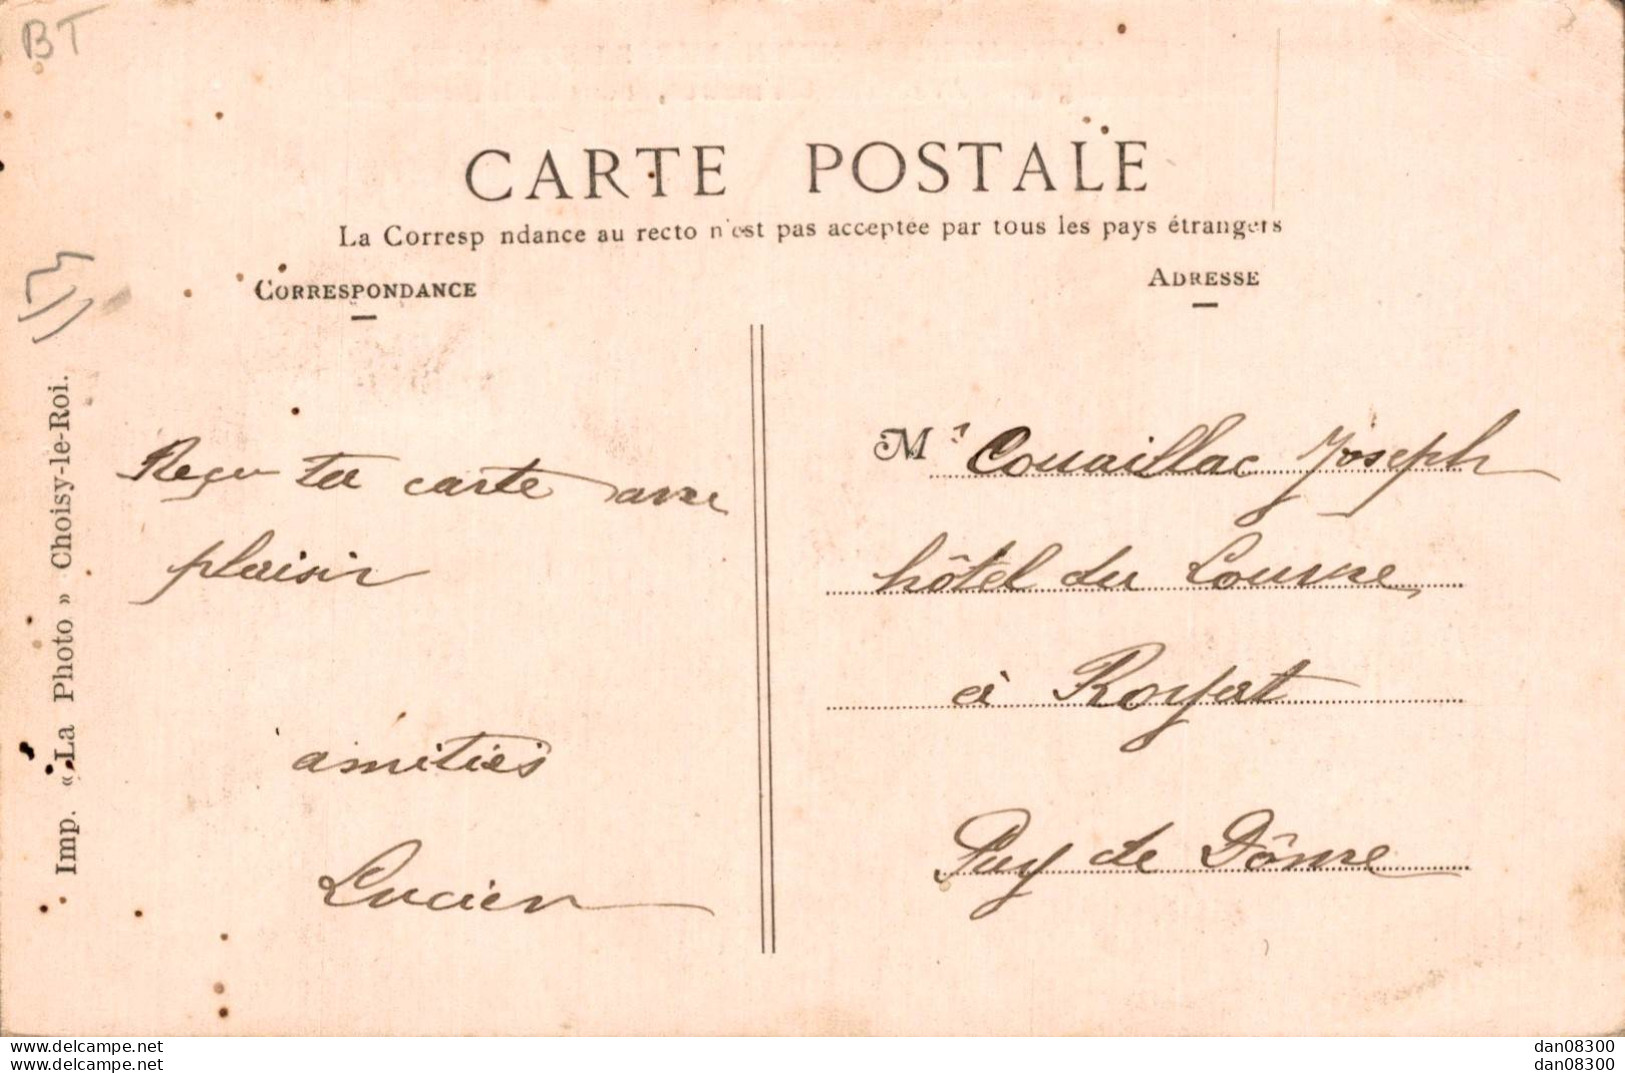 BT
CARTE POSTALE
La Corresp ndance au recto n'est pas acceptée par tous les pays étrangers
CORRESPONDANCE
ADRESSE
Imp. « La Photo » Choisy-le-Roi.
Reçu ta carte avec
plaisir
amitiés
Lucien
M. Couaillac Joseph
hôtel du Louvre
à Royat
Puy de Dôme
www.delcampe.net
www.delcampe.net
dan08300
dan08300